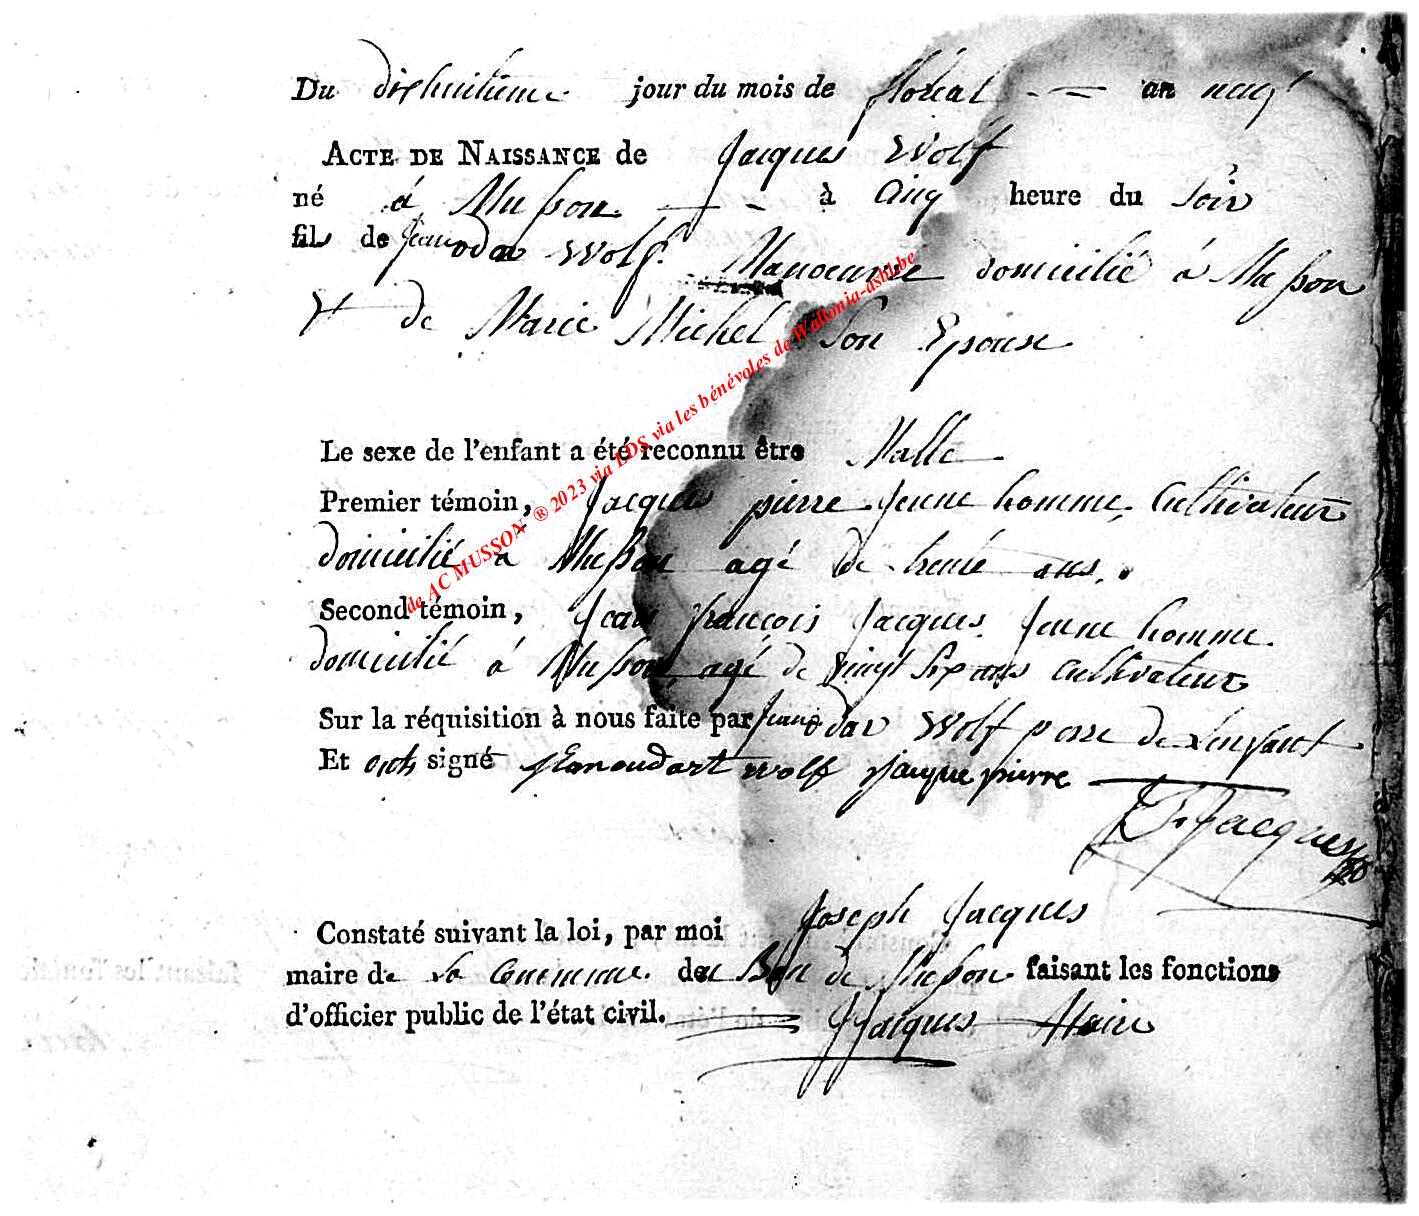 Du dixhuitieme jour du mois de floréal - — an neuf
ACTE DE NAISSANCE de Jacques Wolf
né á Musson. — - à Cinq heure du Soir
fils de Jean odar Wolf. Manoeuvre domicilié á Musson
& de Marie Michel Son Epouse
Le sexe de l'enfant a été reconnu être Malle
Premier témoin, Jacques pierre Jeune homme, Cultivateur
domicilié a Musson agé de trente ans.
Second témoin, Jean françois Jacques Jeune homme.
domicilié á Musson, agé de vingt Six ans Cultivateur
Sur la réquisition à nous faite par Jean odar Wolf perre de L'enfant
Et onts signé Jeanoudart wolf Jacque pierre
J. F. Jacques
Constaté suivant la loi, par moi Joseph Jacques
maire de la Commune de Musson faisant les fonctions
d'officier public de l'état civil. J Jacques Maire
de AC MUSSON ® 2023 via LDS via les bénévoles de Wallonia-asbl.be